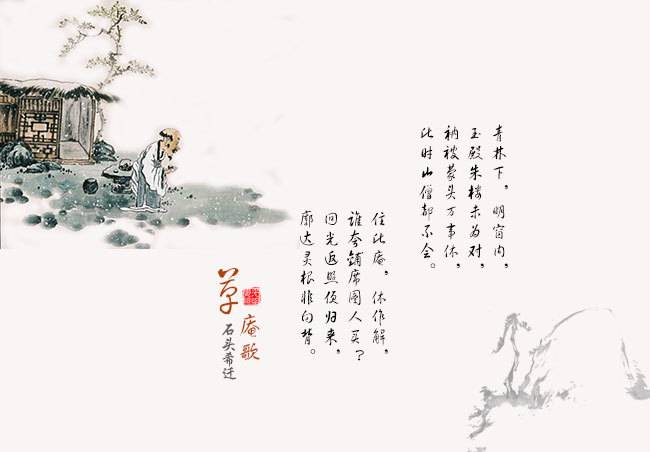 青林下，明窗内，
玉殿朱楼未为对，
衲被蒙头万事休，
此时山僧都不会。
住此庵，休作解，
谁夸铺席图人买？
回光返照便归来，
廓达灵根非向背。
草庵歌
石头希迁